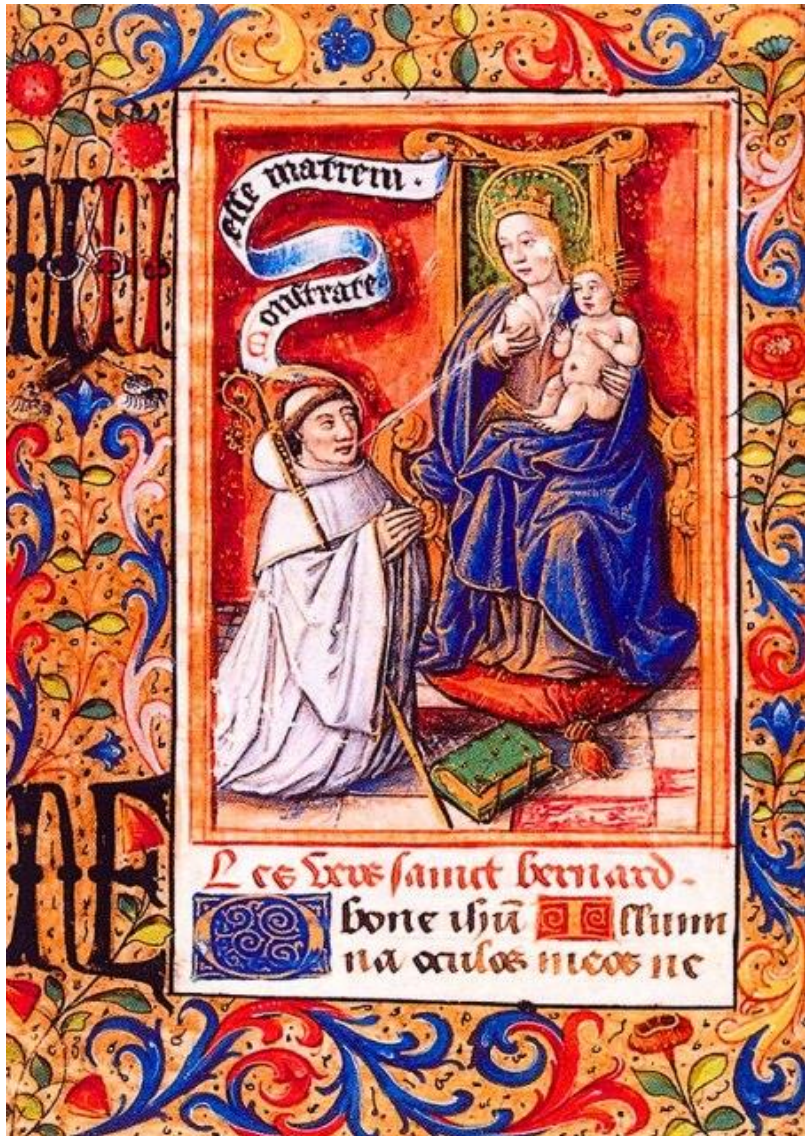 Monstrate
esse matrem.
Les vers sainct bernard.
O bone ihū Illumi
na oculos meos ne
NE